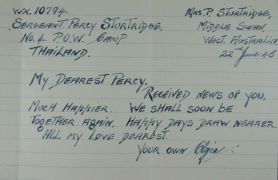 WX.10794.
SERGEANT. PERCY STURTRIDGE.
No. 2. P.O.W. CAMP
THAILAND.
MRS. P. STURTRIDGE,
MIDDLE SWAN,
WEST. AUSTRALIA
22nd June 45
MY DEAREST PERCY.
RECEIVED NEWS OF YOU.
MUCH HAPPIER. WE SHALL SOON BE
TOGETHER AGAIN. HAPPY DAYS DRAW NEARER
ALL MY LOVE DEAREST.
YOUR OWN